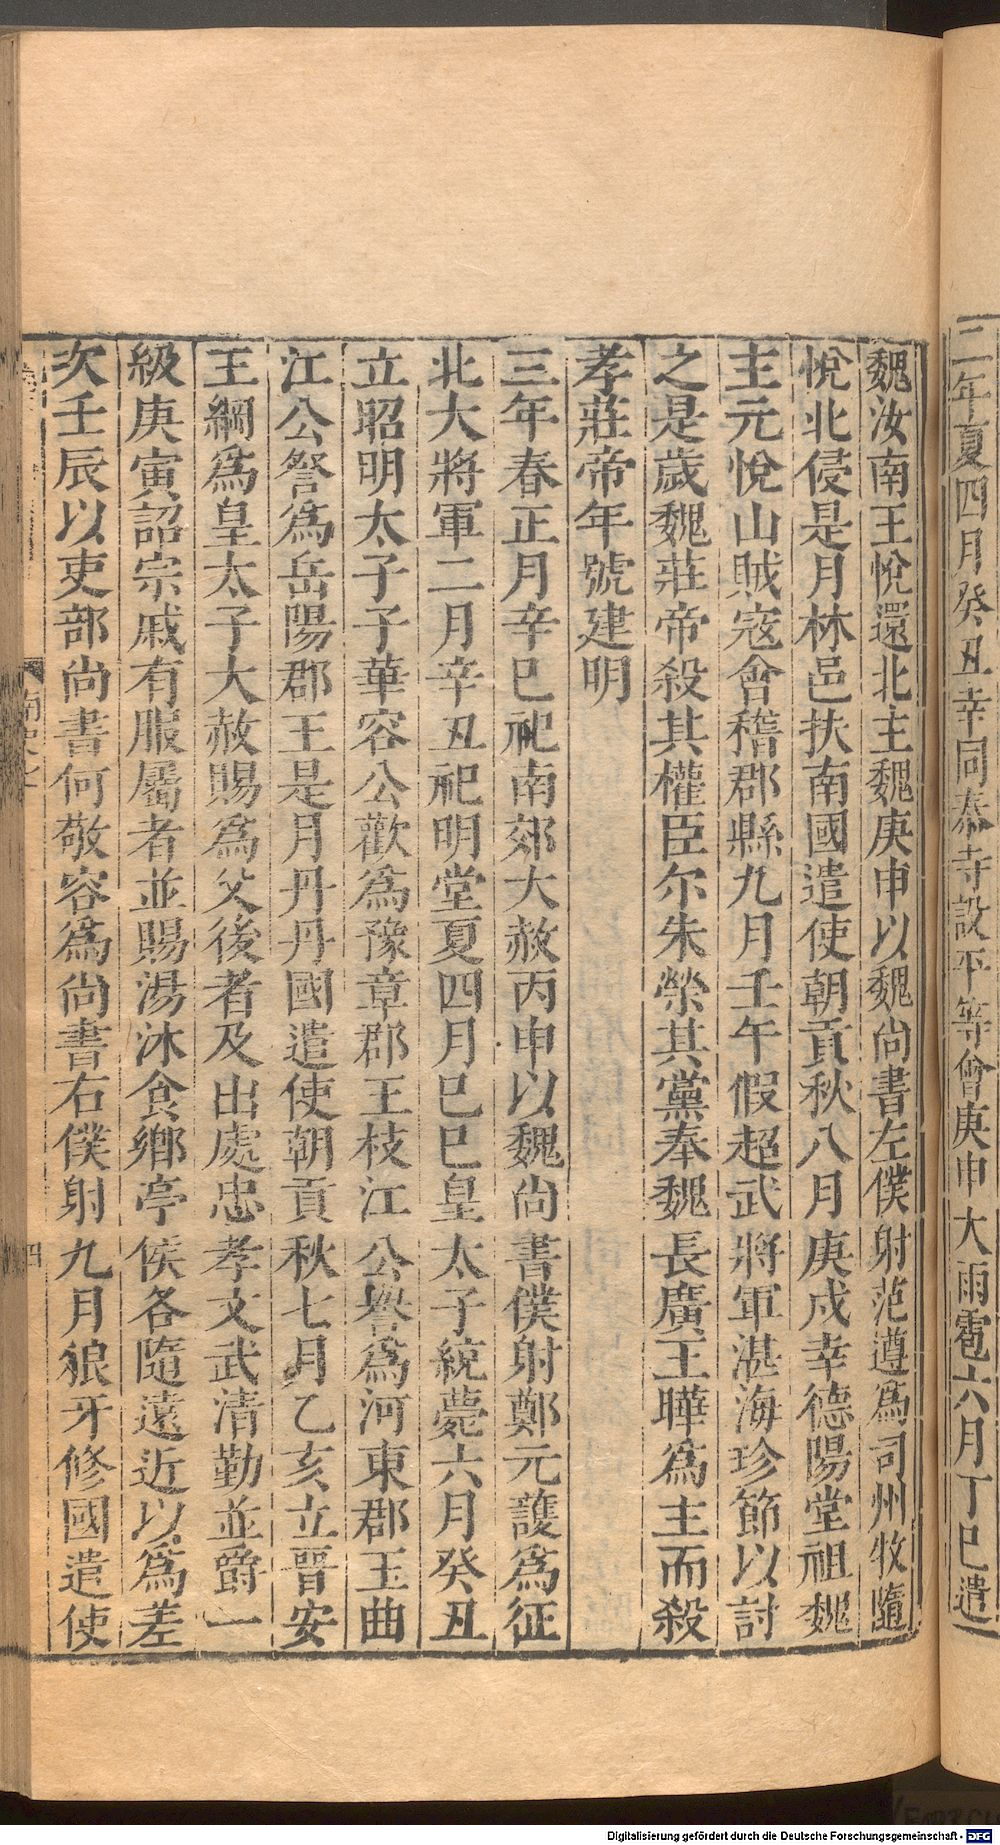 二年夏四月癸丑幸同泰寺設平等會庚申大雨雹六月丁巳遣
魏汝南王悅還北主魏庚申以魏尚書左僕射范遵爲司州牧隨
悅北侵是月林邑扶南國遣使朝貢秋八月庚戍幸德陽堂祖魏
主元悅山賊寇會稽郡縣九月壬午假超武將軍湛海珍節以討
之是歲魏莊帝殺其權臣尔朱榮其黨奉魏長廣王曄爲主而殺
孝莊帝年號建明
三年春正月辛巳祀南郊大赦丙申以魏尚書僕射鄭元護爲征
北大將軍二月辛丑祀明堂夏四月巳巳皇太子統薨六月癸丑
立昭明太子子華容公歡爲豫章郡王枝江公譽爲河東郡王曲
江公詧爲岳陽郡王是月丹丹國遣使朝貢秋七月乙亥立晋安
王綱爲皇太子大赦賜爲父後者及出處忠孝文武清勤並爵一
級庚寅詔宗戚有服屬者並賜湯沐食鄉亭侯各隨遠近以爲差
次壬辰以吏部尚書何敬容爲尚書右僕射九月狼牙修國遣使
南史七
四
Digitalisierung gefördert durch die Deutsche Forschungsgemeinschaft - DFG